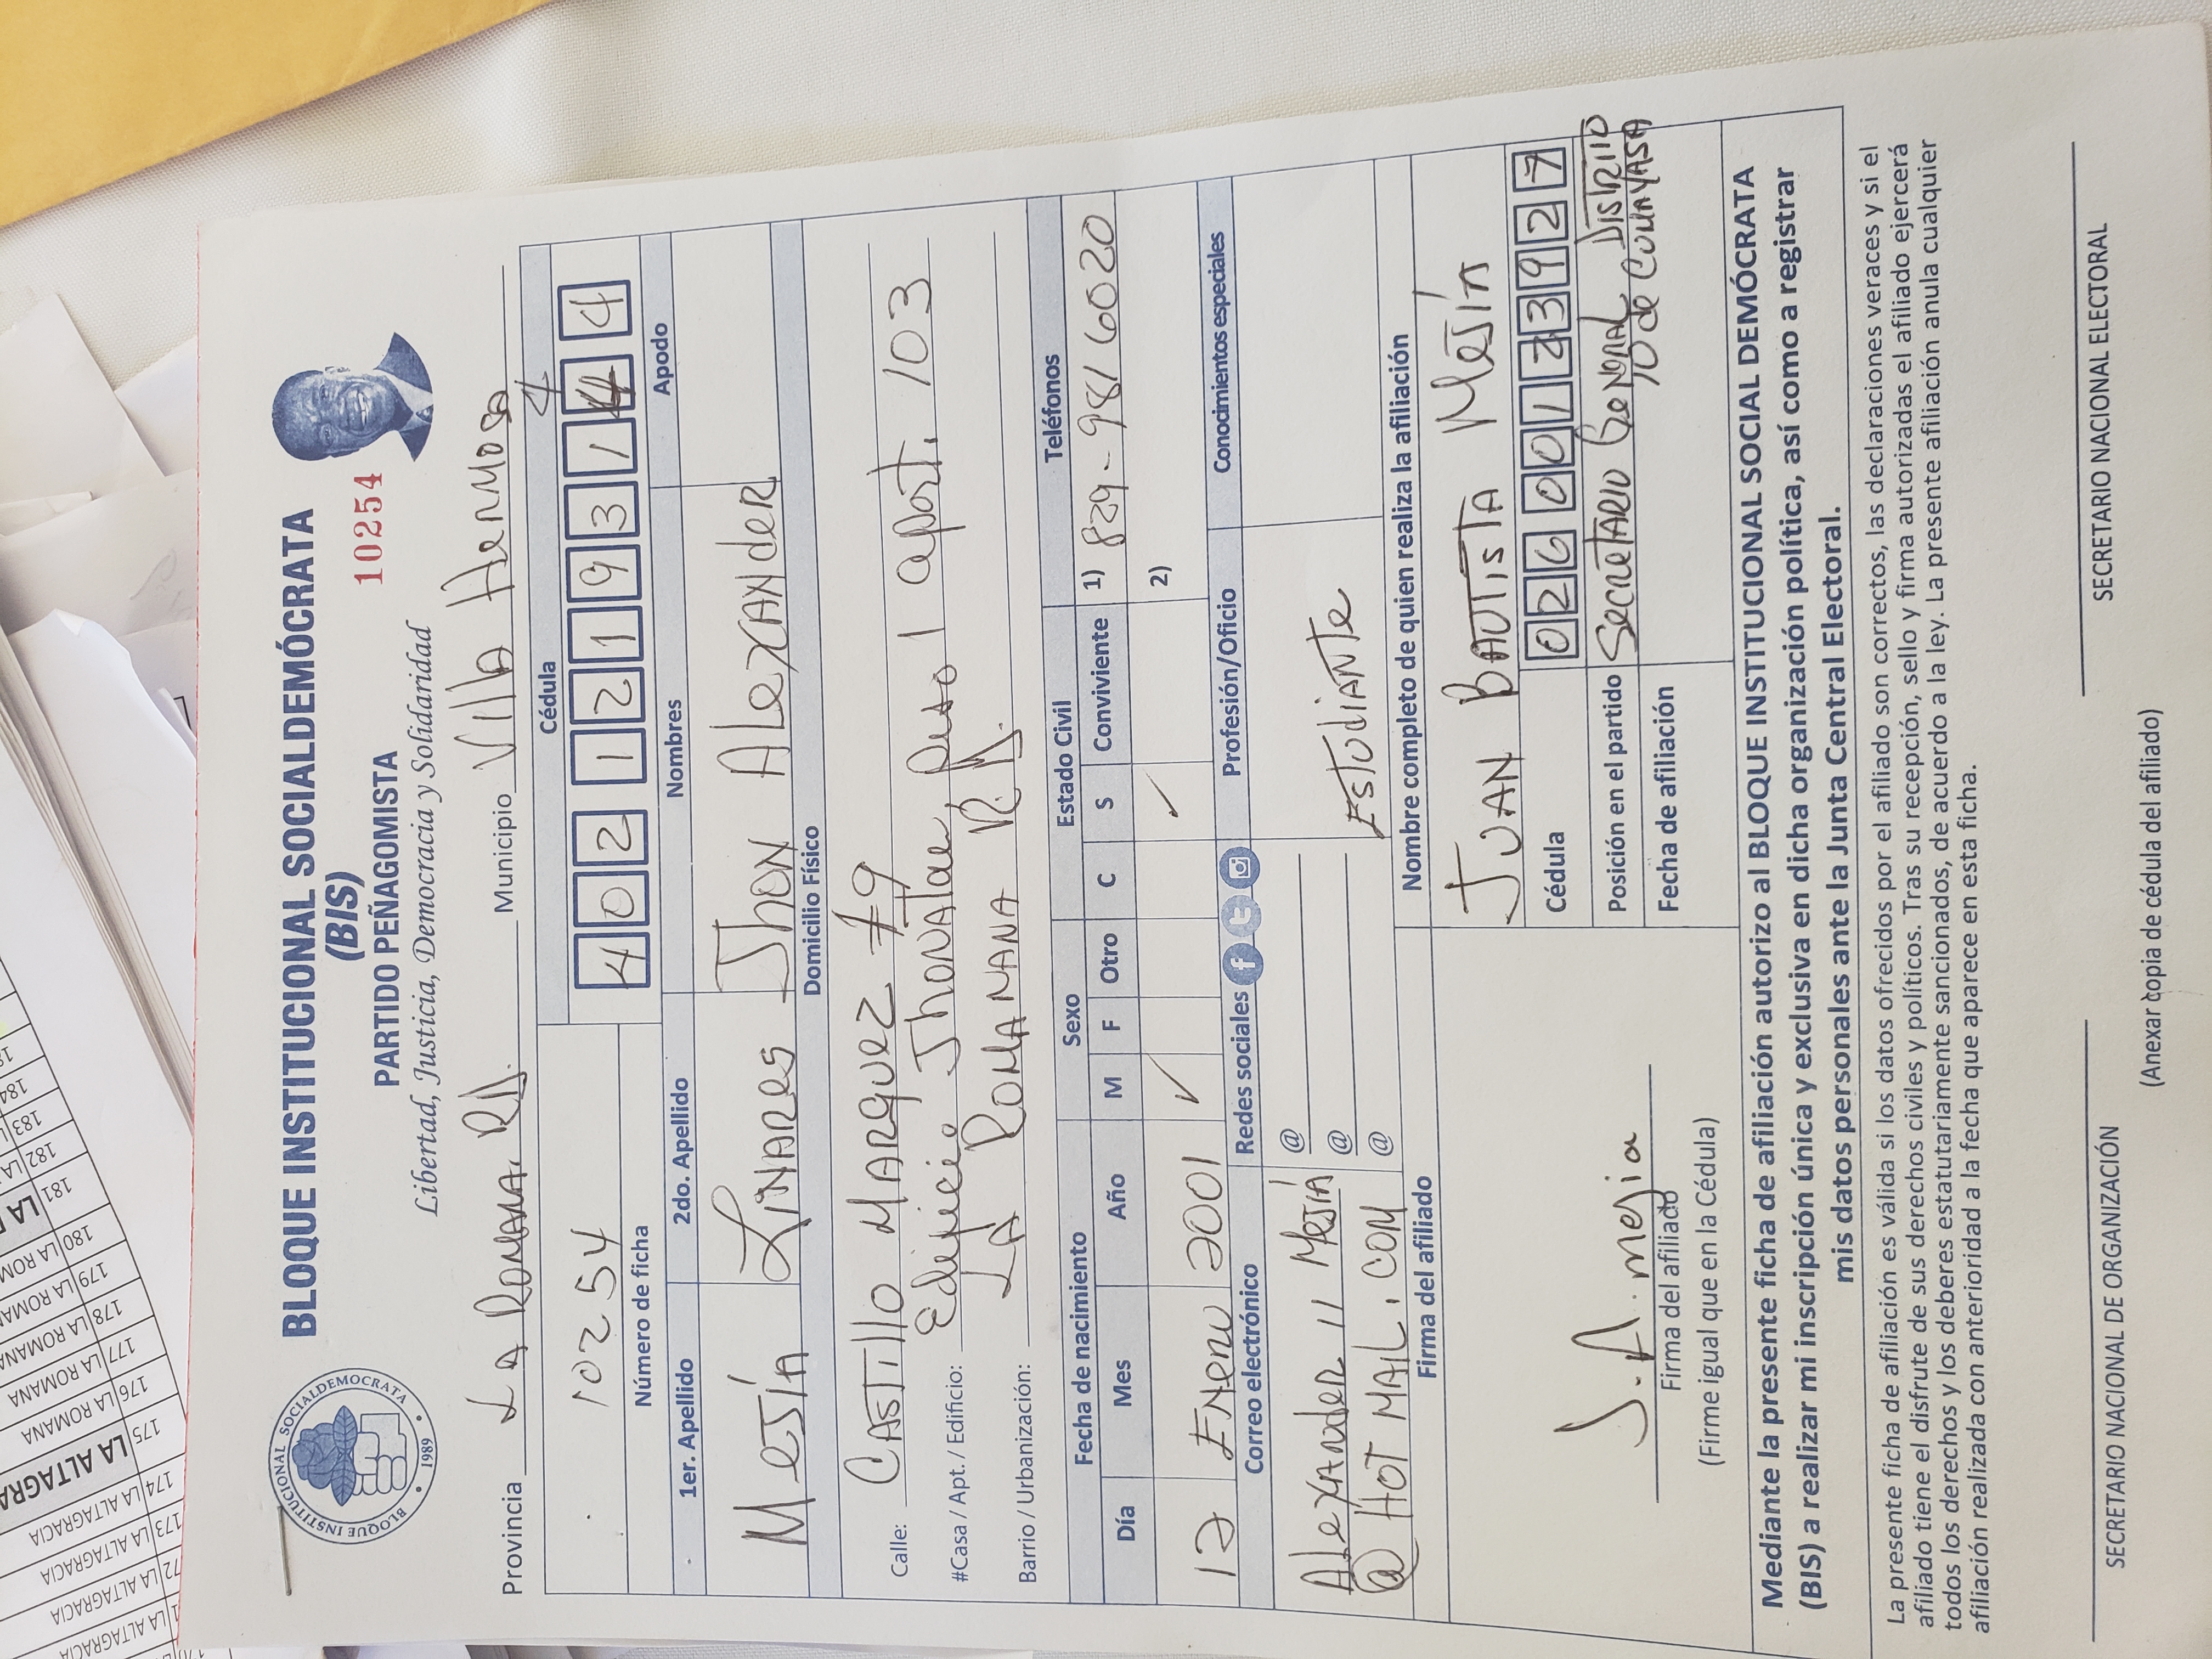 BLOQUE INSTITUCIONAL SOCIALDEMÓCRATA
(BIS)
PARTIDO PEÑAGOMISTA
10254
Libertad, Justicia, Democracia y Solidaridad
BLOQUE INSTITUCIONAL SOCIALDEMOCRATA
1989
Provincia LA ROMANA. RD. Municipio Villa Hermosa
10254
Número de ficha
Cédula
4
4 0 2 1 2 1 9 3 1 4 4
1er. Apellido 2do. Apellido Nombres Apodo
Mejía Linares Jhon Alexander
Domicilio Físico
Calle: Castillo Marquez 79
#Casa / Apt. / Edificio: Edificio Jhonatan Piso 1 apart. 103
Barrio / Urbanización: LA ROMANANA R.D.
Fecha de nacimiento Sexo Estado Civil Teléfonos
Día Mes Año M F Otro C S Conviviente 1) 829-981 6020
12 Enero 2001 ✓ ✓ 2)
Correo electrónico Redes sociales Profesión/Oficio Conocimientos especiales
Alexander 11 Mejía
@ HOT MAIL. COM
@
@
@
Estudiante
Firma del afiliado
J. A. mejia
Firma del afiliado
(Firme igual que en la Cédula)
Nombre completo de quien realiza la afiliación
JUAN BAUTISTA Mejía
Cédula 0 2 6 0 0 1 2 3 9 2 7
Posición en el partido Secretario General Distrito
de Cumayasa
Fecha de afiliación
Mediante la presente ficha de afiliación autorizo al BLOQUE INSTITUCIONAL SOCIAL DEMÓCRATA
(BIS) a realizar mi inscripción única y exclusiva en dicha organización política, así como a registrar
mis datos personales ante la Junta Central Electoral.
La presente ficha de afiliación es válida si los datos ofrecidos por el afiliado son correctos, las declaraciones veraces y si el
afiliado tiene el disfrute de sus derechos civiles y políticos. Tras su recepción, sello y firma autorizadas el afiliado ejercerá
todos los derechos y los deberes estatutariamente sancionados, de acuerdo a la ley. La presente afiliación anula cualquier
afiliación realizada con anterioridad a la fecha que aparece en esta ficha.
SECRETARIO NACIONAL DE ORGANIZACIÓN
SECRETARIO NACIONAL ELECTORAL
(Anexar copia de cédula del afiliado)
173 LA ALTAGRACIA
174 LA ALTAGRACIA
175 LA ALTAGRA
176 LA ROMANA
177 LA ROMANA
178 LA ROMANA
179 LA ROMAN
180 LA ROM
181
182
183
184